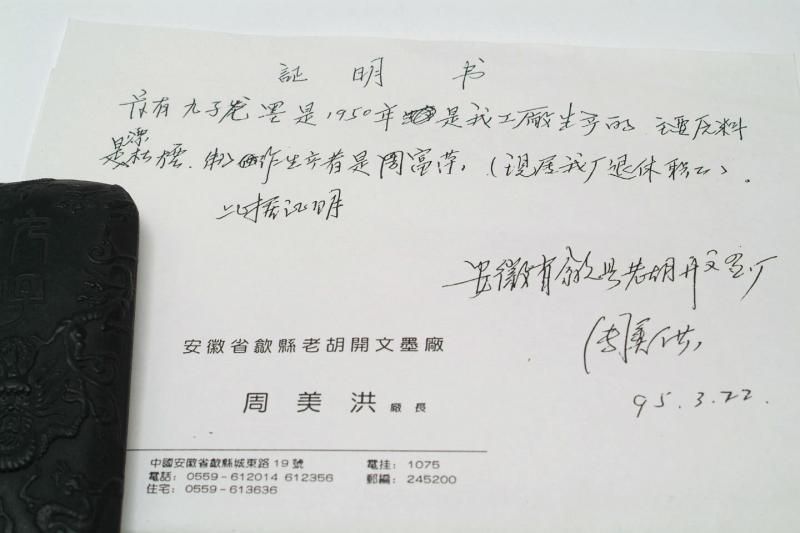 証明书
兹有九子龙墨是1950年是我工厂生产的 主要原料
是漆松烟.制作生产者是周富荣,(现属我厂退休职工).
以据证明
安徽省歙县老胡开文墨厂
周美洪
95.3.22.
安徽省歙縣老胡開文墨廠
周美洪 廠長
中國安徽省歙縣城東路19號 電挂：1075
電話：0559－612014 612356 郵編：245200
住宅：0559－613636